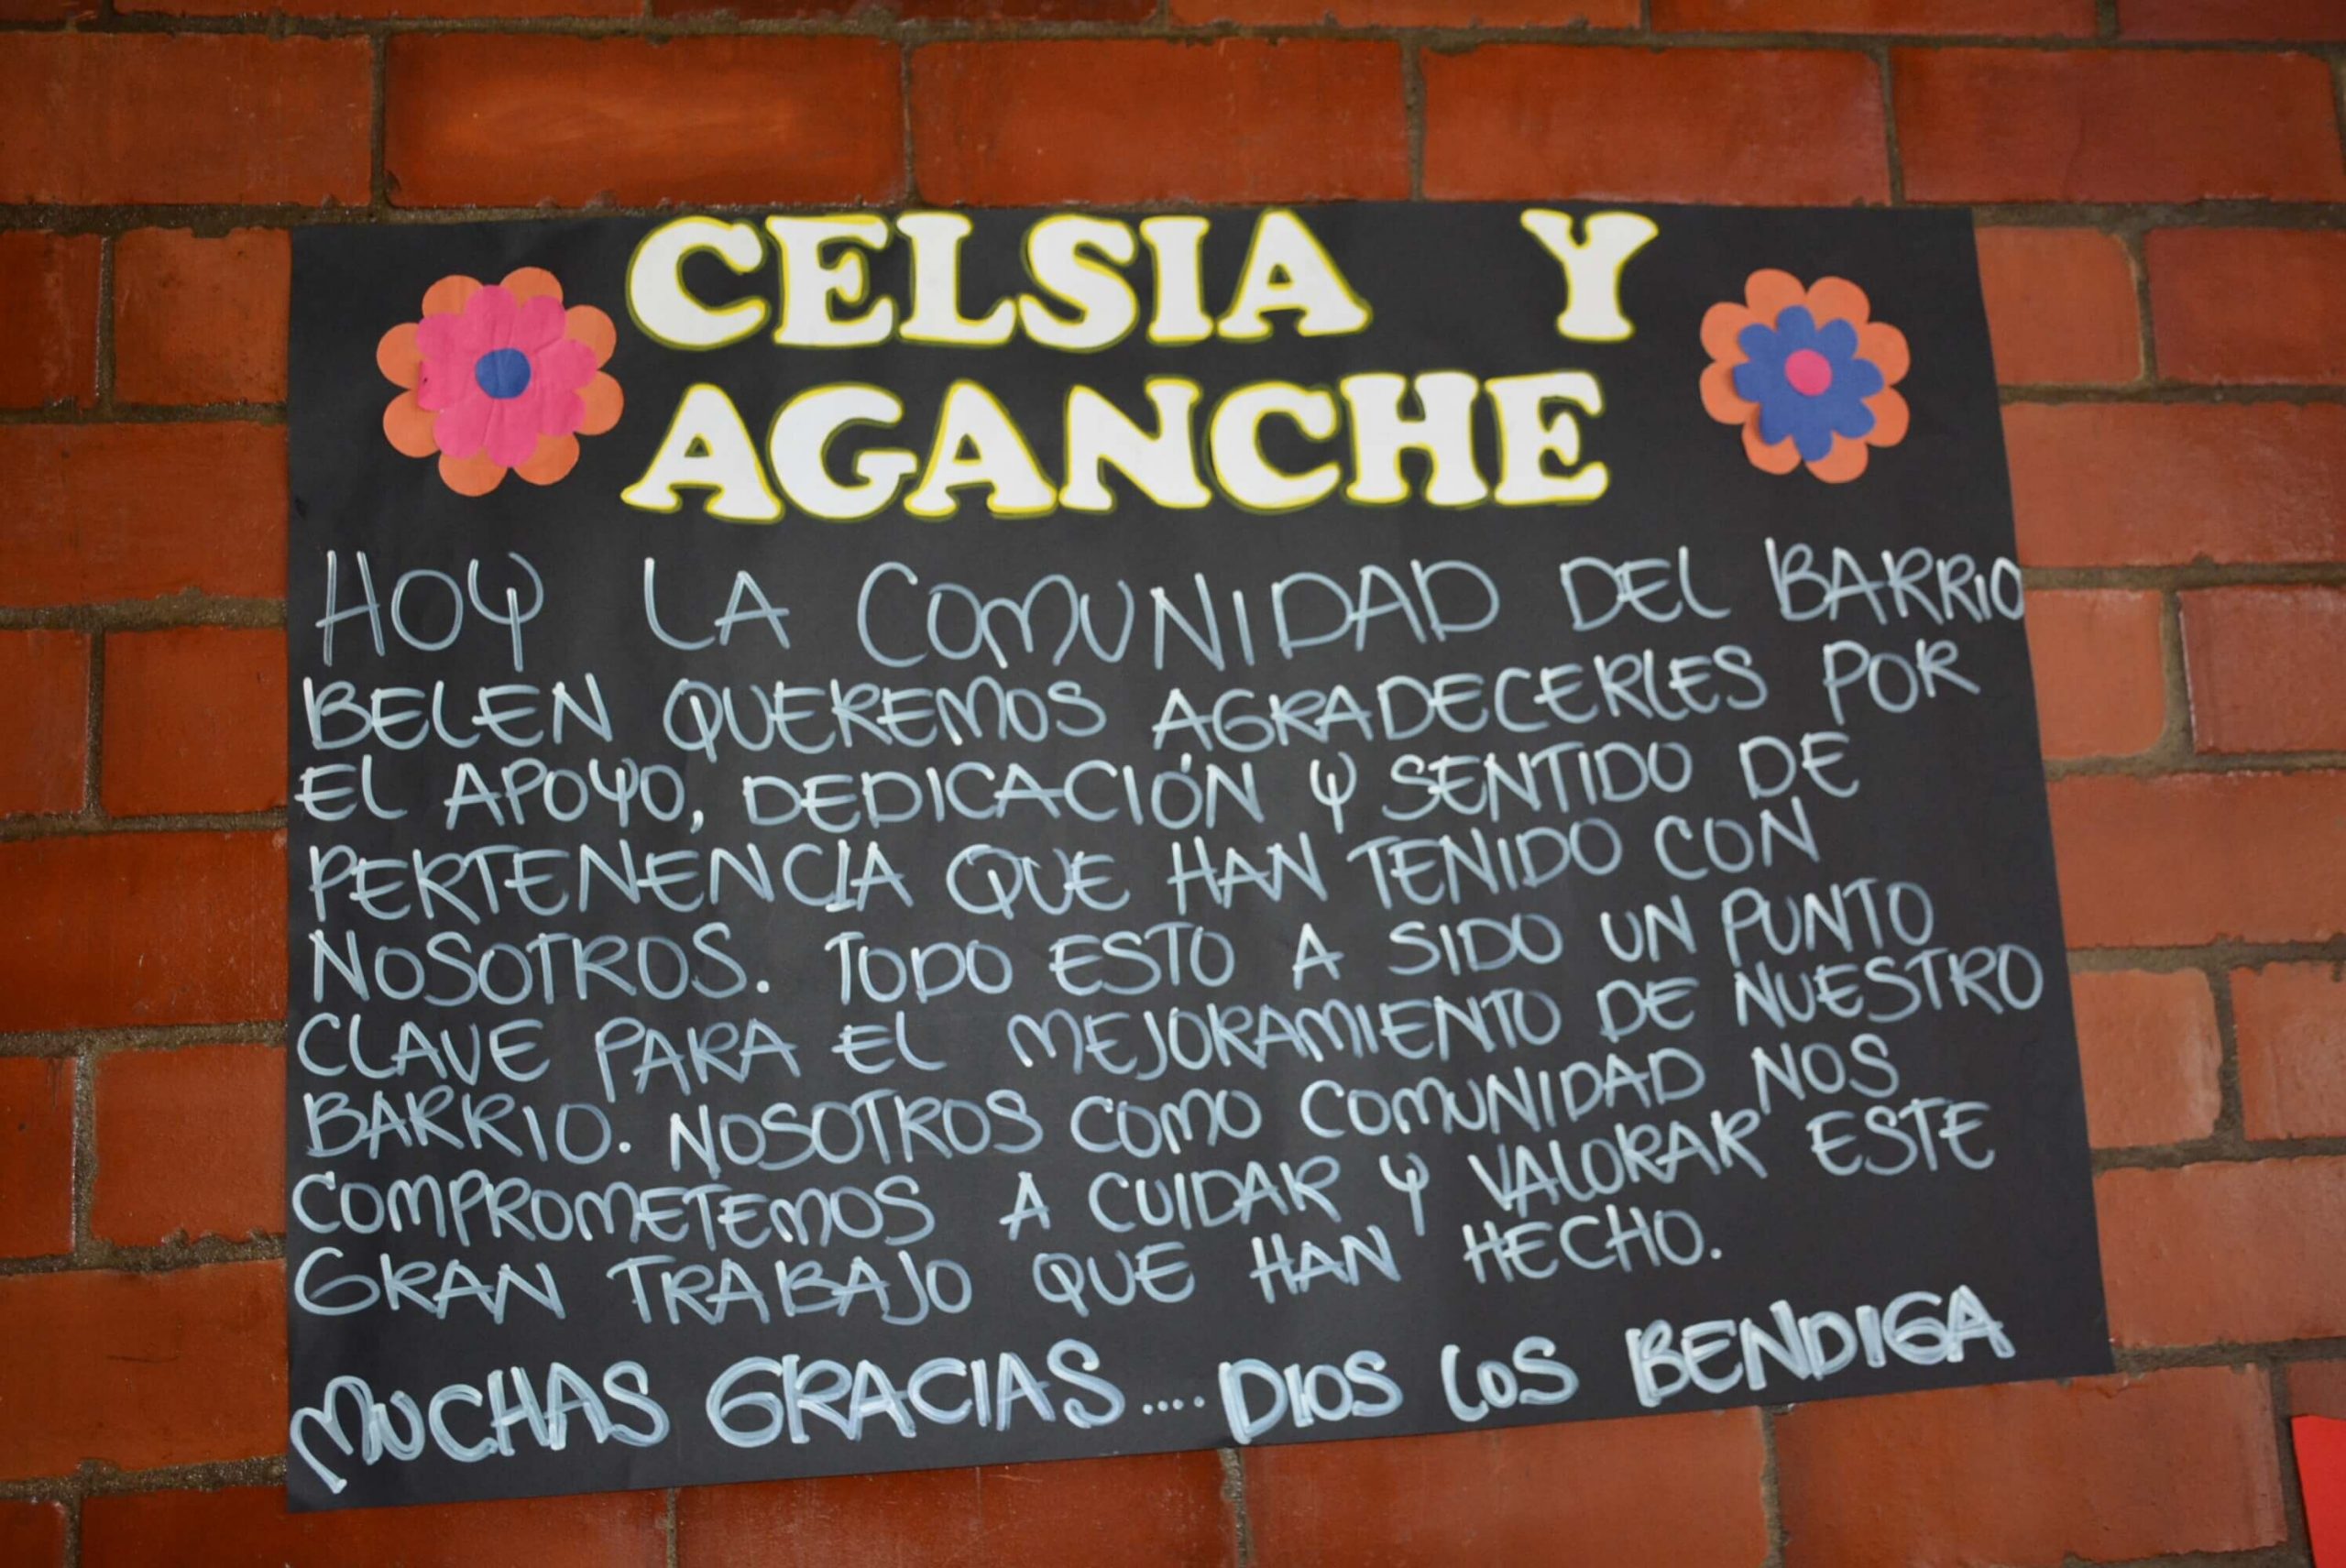 CELSIA Y
AGANCHE
HOY LA COMUNIDAD DEL BARRIO
BELEN QUEREMOS AGRADECERLES POR
EL APOYO, DEDICACIÓN Y SENTIDO DE
PERTENENCIA QUE HAN TENIDO CON
NOSOTROS. TODO ESTO A SIDO UN PUNTO
CLAVE PARA EL MEJORAMIENTO DE NUESTRO
BARRIO. NOSOTROS COMO COMUNIDAD NOS
COMPROMETEMOS A CUIDAR Y VALORAR ESTE
GRAN TRABAJO QUE HAN HECHO.
MUCHAS GRACIAS.... DIOS LOS BENDIGA